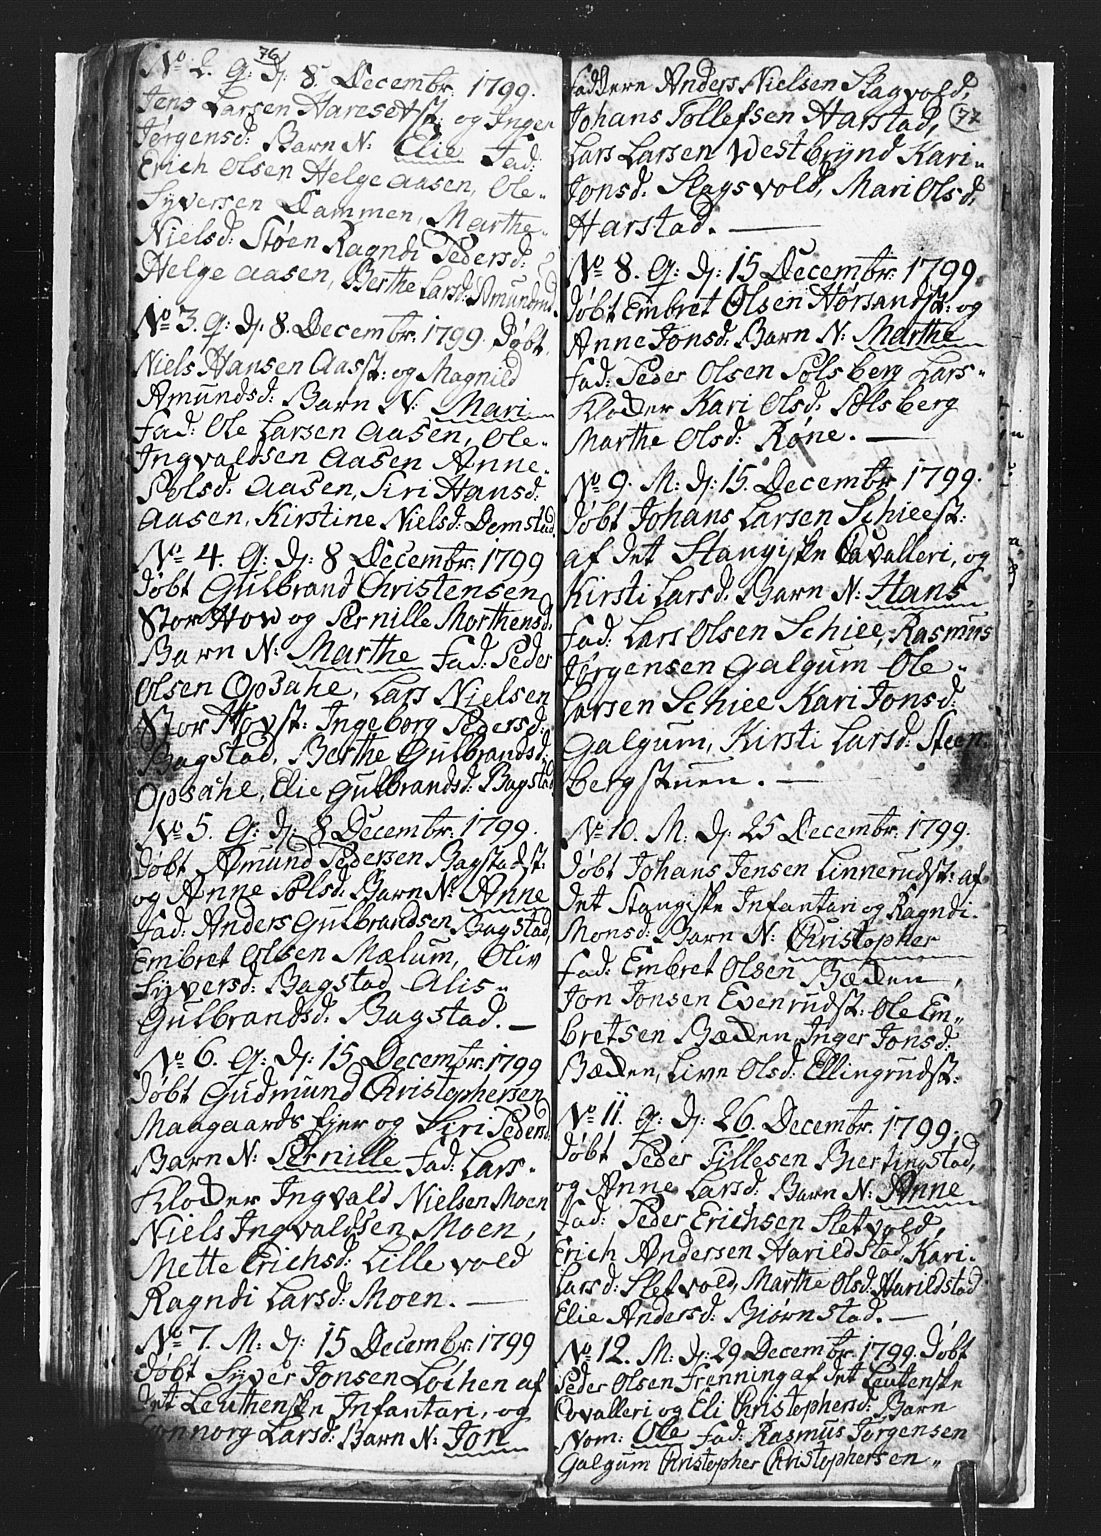 76
No 2. G: D: 8. Decembr. 1799.
Jens Larsen Haresetst: og Inger
Jørgensd: Barn N: Elie Fad:
Erich Olsen Helge Aasen, Ole-
Syversen Dammen, Marthe-
Nielsd: Støen Ragndi Pedersd:
Helge Aasen, Berthe Larsd: Amundrud.
No 3. G: D: 8. Decembr. 1799. Døbt
Niels Hansen Aasst: og Magnild
Amundsd: Barn N: Mari
Fad: Ole Larsen Aasen, Ole-
Ingvaldsen Aasen Anne-
Polsd: Aasen, Siri Hansd:
Aasen, Kirstine Nielsd: Domstad.
No 4. G: D: 8 Decembr: 1799
Døbt Gulbrand Christensen
Stor How og Pernille Morthensd:
Barn N: Marthe Fad: Peder
Olsen Opsahe, Lars Nielsen
Stor Hovst: Ingeborg Pedersd:
Bagstad, Berthe Gulbrandsd:
Opsahe, Elie Gulbrandsd: Bagstad
No 5. G: D: 8 Decembr: 1799.
Døbt Amund Pedersen Bagstadst:
og Anne Polsd: Barn N: Anne
Fad: Anders Gulbrandsen Bagstad,
Embret Olsen Mælum, Oliv
Syversd: Bagstad Alis-
Gulbrandsd: Bagstad. —
No 6. G: D: 15 Decembr: 1799
Døbt Gudmund Christophersen
Maagaards Ejer og Siri Pedersd:
Barn N: Pernille Fad: Lars-
Kloder Ingvald Nielsen Moen
Niels Ingvaldsen Moen,
Mette Erichsd: Lille vold
Ragndi Larsd: Moen. —
No 7. M: D: 15 Decembr: 1799
Døbt Syver Jonsen Løchen af
det Leuthenske Infantari, og
Larsd: Barn N: Jon
77
Faddern Anders Nielsen Slagvold,
Johans Tollefsen Harstad,
Lars Larsen Westbrynd Kari-
Jonsd: Slagsvold, Mari Olsd:
Harstad. —
No 8. G: D: 15 Decembr: 1799.
Døbt Embret Olsen Horsandst: og
Anne Jonsd: Barn N: Marthe
Fad: Peder Olsen Solsberg Lars-
Kloder Kari Olsd: Solsberg
Marthe Olsd: Røne. —
No 9. M: D: 15 Decembr. 1799.
Døbt Johans Larsen Schieest:
af det Stangiske Cavalleri, og
Kirsti Larsd: Barn N: Hans
Fad: Lars Olsen Schiee, Rasmus
Jørgensen Galgum Ole-
Larsen Schiee Kari Jonsd:
Galgum, Kirsti Larsd: Steen-
bergstuen. —
No 10. M: D: 25 Decembr: 1799.
Døbt Johans Jensen Linnerudst: af
det Stangiske Infantari og Ragndi-
Monsd: Barn N: Christopher
Fad: Embret Olsen Bædden,
Jon Jonsen Evenrudst: Ole Em-
bretsen Bædden, Inger Jonsd:
Bædden, Live Olsd: Ellingrudst:
No 11. G: D: 26. Decembr: 1799.
Døbt Peder Tillesen Biertingstad,
og Anne Larsd: Barn N: Anne
Fad: Peder Erichsen Sletvold,
Erich Andersen Harildstad, Kari-
Larsd: Sletvold, Marthe Olsd: Harildstad
Elie Andersd: Biørnstad. —
No 12. M: D: 29 Decembr: 1799. Døbt
Peder Olsen Frenning af det Leutenske
Covalleri og Eli Christophersd: Barn
Nom: Ole Fad: Rasmus Jørgensen
Galgum Christopher Christophersen-